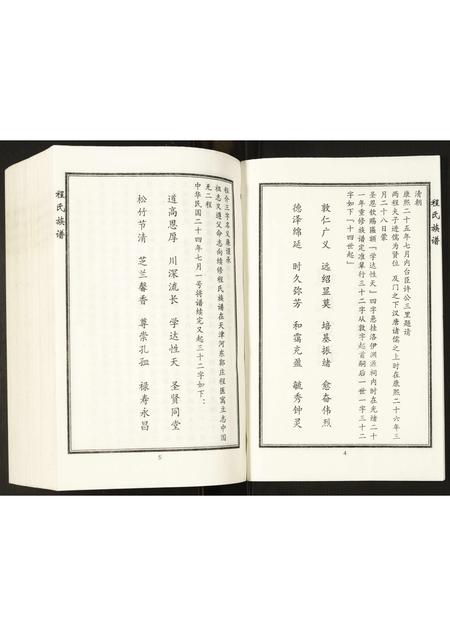 程氏族谱
清朝
康熙二十五年七月内台臣许公三里题请
两程夫子进儒为贤位 及门之下汉唐诸儒之上时在康熙二十六年三
月二十八日蒙
圣恩钦赐匾额「学达性天」四字悬挂洛伊渊源祠内时在光绪二十
一年重修族谱定准辈行三十二字从敦字起首嗣后一世一字三十二
字如下「十四世起」
敦仁广义 远绍显莫 培基振绪 愈奋伟烈
德泽绵延 时久弥芳 和霭充盈 毓秀钟灵
4
程介三字名义廉谨承
祖志又遵父命志向续修程氏族谱在天津河东郭庄程医寓主志中国
无二程
中华民国二十四年七月一号将谱续完又起三十二字如下：
道高恩厚 川深流长 学达性天 圣贤同堂
松竹节清 芝兰馨香 尊崇孔孟 禄寿永昌
5
程氏族谱